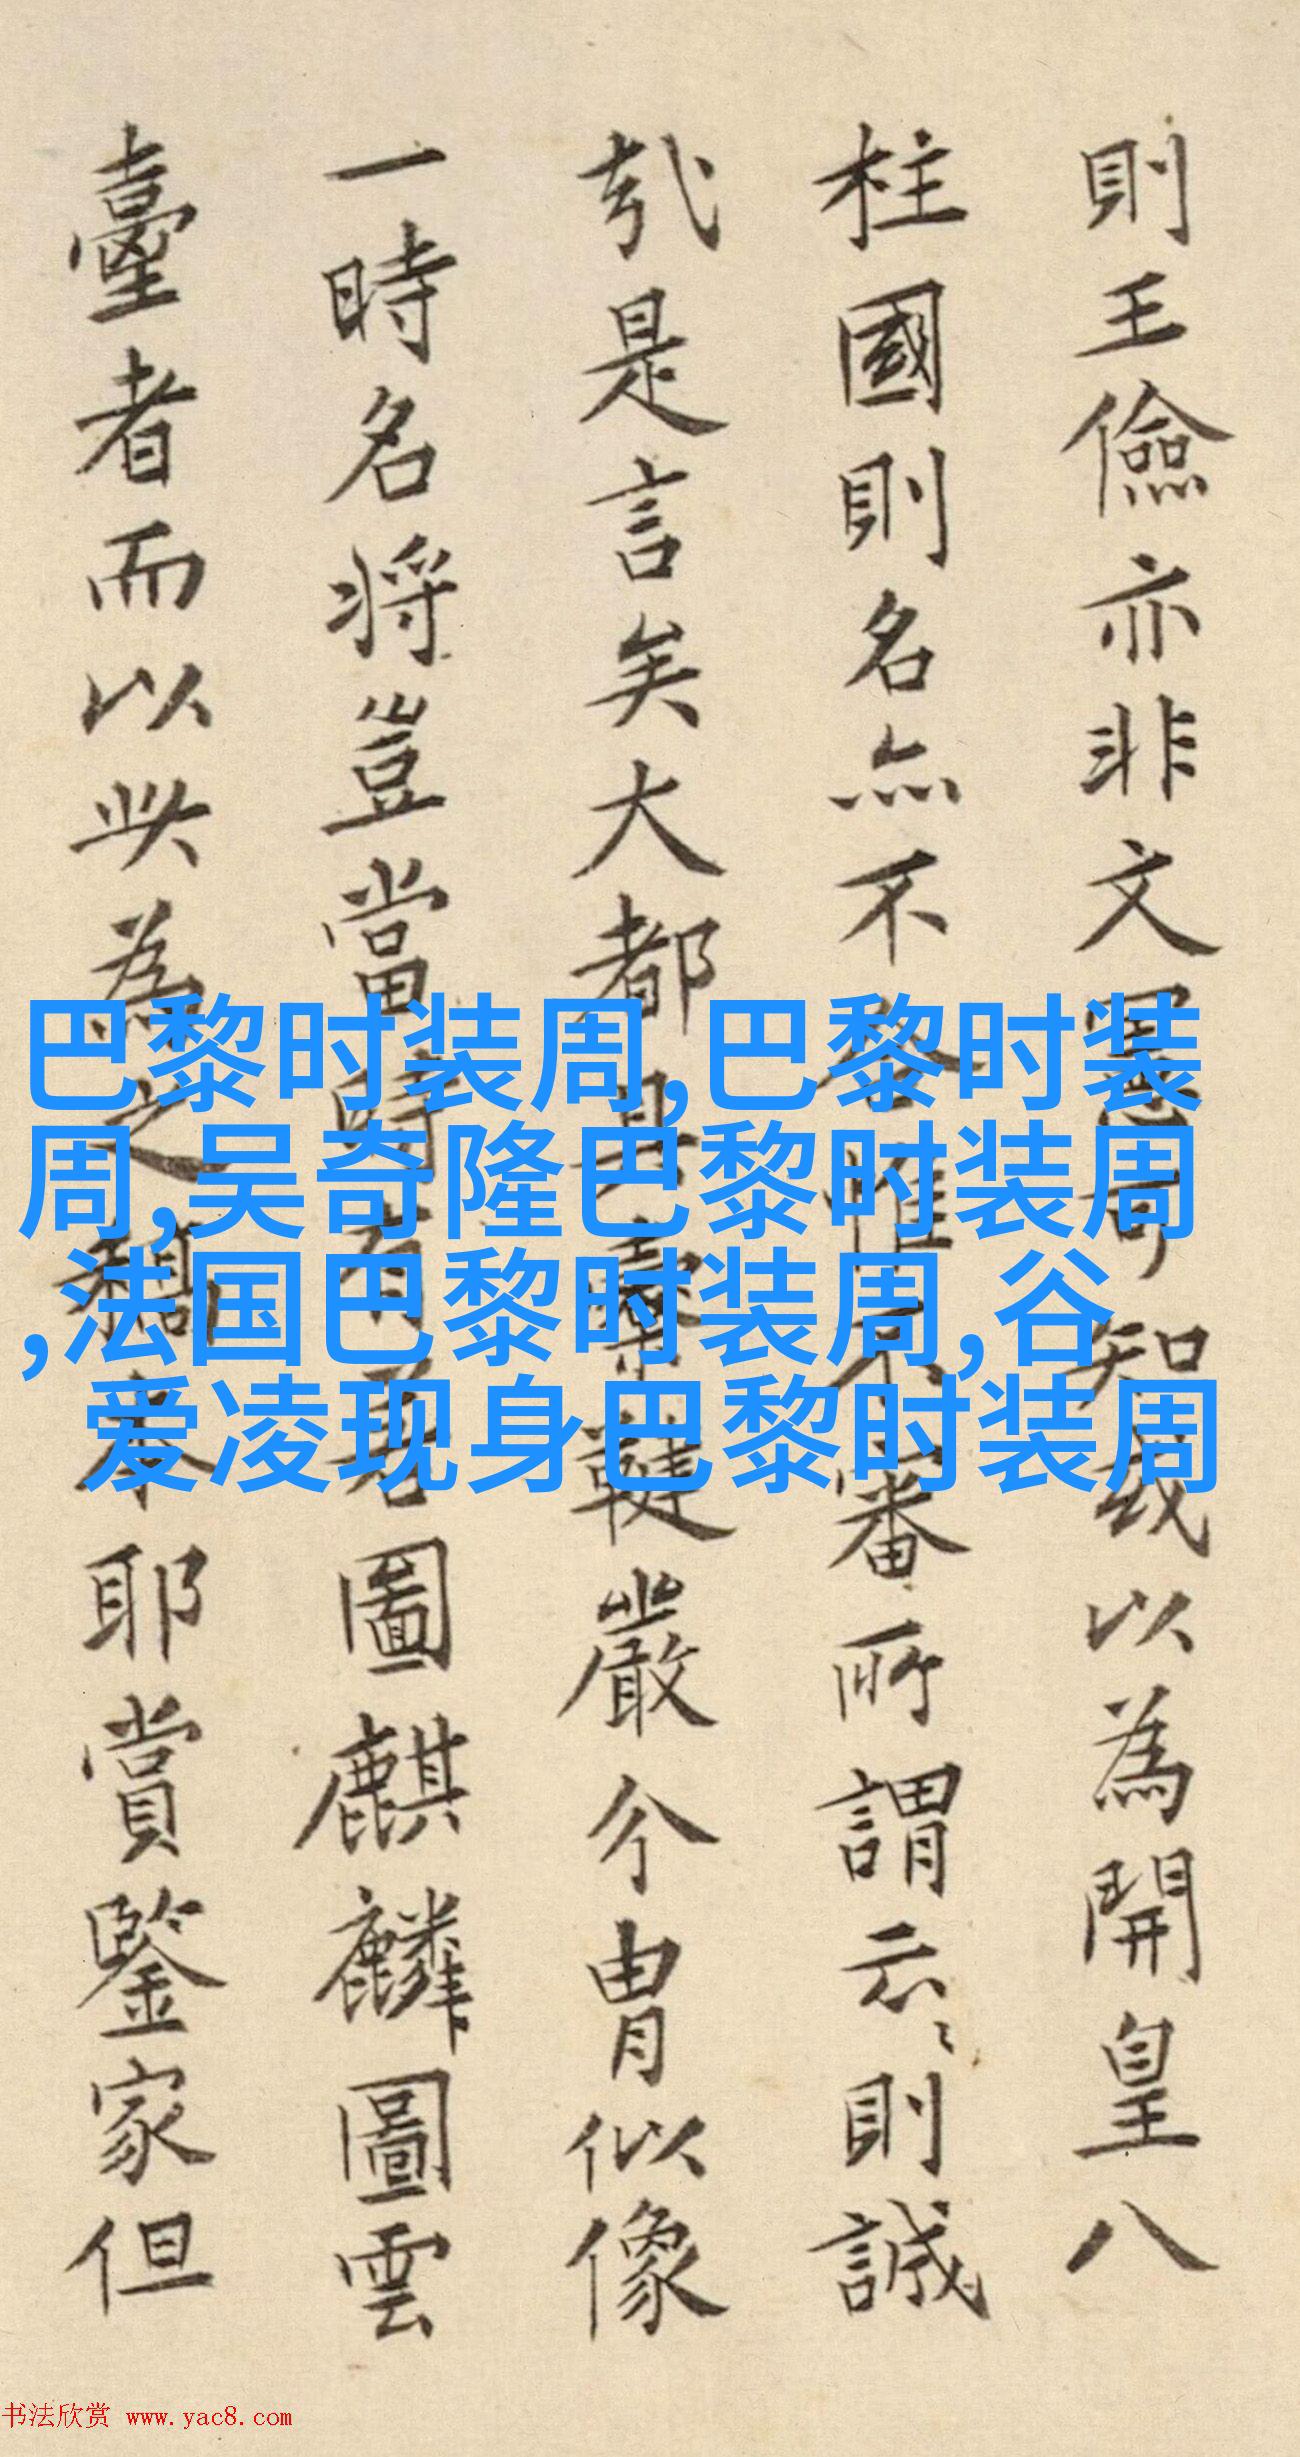 則王儉亦非文墨可知哉以為開皇八
柱國則名亦不惟不審所謂云〻則誠
哉是言矣大都具櫜鞬嚴介冑似像
一時名将豈當時有名圖麒麟圖雲
臺者而以此為之稱本耶賞鑒家但
巴黎时装周,巴黎时装
周,吴奇隆巴黎时装周
,法国巴黎时装周,谷
爱凌现身巴黎时装周
书法欣赏 www.yac8.com